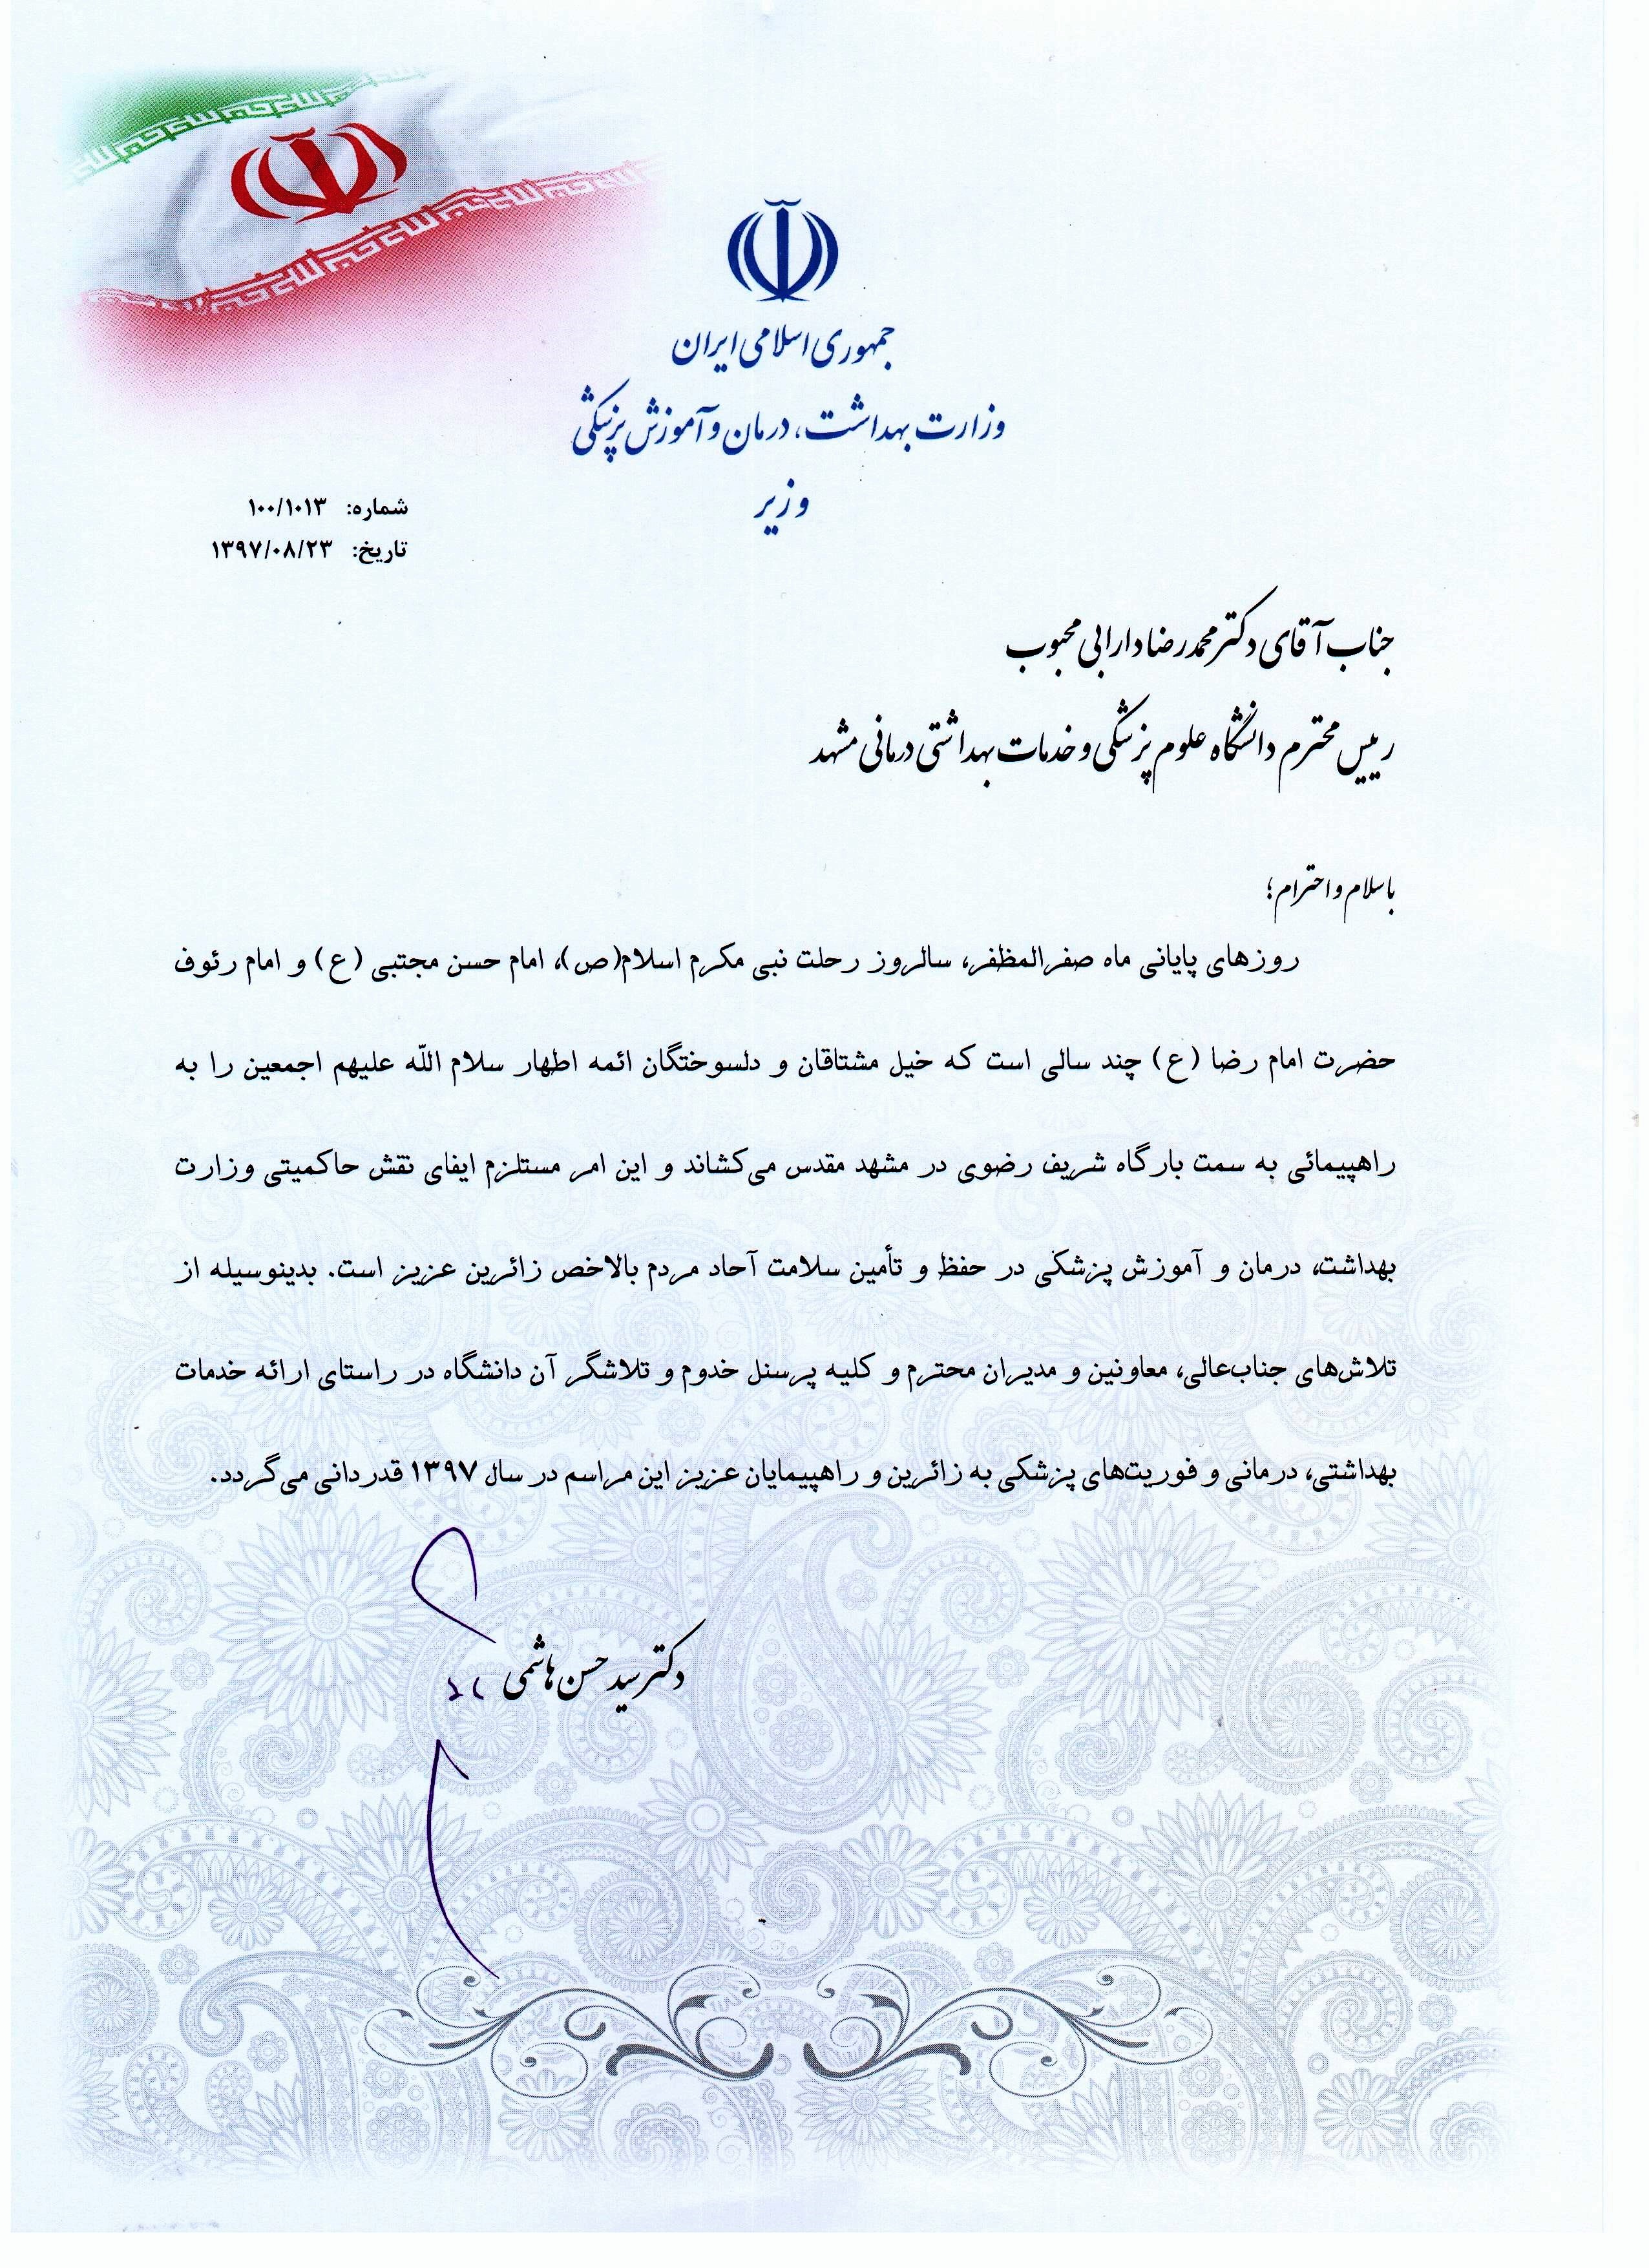 جمهوری اسلامی ایران
وزارت بهداشت، درمان و آموزش پزشکی
وزیر
شماره: ۱۰۰/۱۰۱۳
تاریخ: ۱۳۹۷/۰۸/۲۳
جناب آقای دکتر محمدرضا دارابی محبوب
رییس محترم دانشگاه علوم پزشکی و خدمات بهداشتی درمانی مشهد
با سلام و احترام؛
روزهای پایانی ماه صفرالمظفر، سالروز رحلت نبی مکرم اسلام(ص)، امام حسن مجتبی (ع) و امام رئوف
حضرت امام رضا (ع) چند سالی است که خیل مشتاقان و دلسوختگان ائمه اطهار سلام اللّه علیهم اجمعین را به
راهپیمائی به سمت بارگاه شریف رضوی در مشهد مقدس می‌کشاند و این امر مستلزم ایفای نقش حاکمیتی وزارت
بهداشت، درمان و آموزش پزشکی در حفظ و تأمین سلامت آحاد مردم بالاخص زائرین عزیز است. بدینوسیله از
تلاش‌های جناب‌عالی، معاونین و مدیران محترم و کلیه پرسنل خدوم و تلاشگر آن دانشگاه در راستای ارائه خدمات
بهداشتی، درمانی و فوریت‌های پزشکی به زائرین و راهپیمایان عزیز این مراسم در سال ۱۳۹۷ قدردانی می‌گردد.
دکتر سید حسن هاشمی